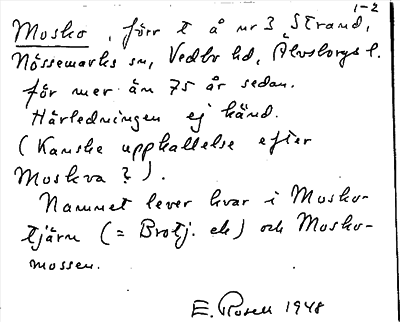 1-2
Mosko, förr t å nr 3 Strand,
Nössemarks sn, Vedbo hd, Älvsborgs l.
för mer än 75 år sedan.
Härledningen ej känd.
(Kanske uppkallelse efter
Moskva?).
Namnet lever kvar i Mosko-
tjärn (= Brotj. ek) och Mosko-
mossen.
E. Rosell 1948